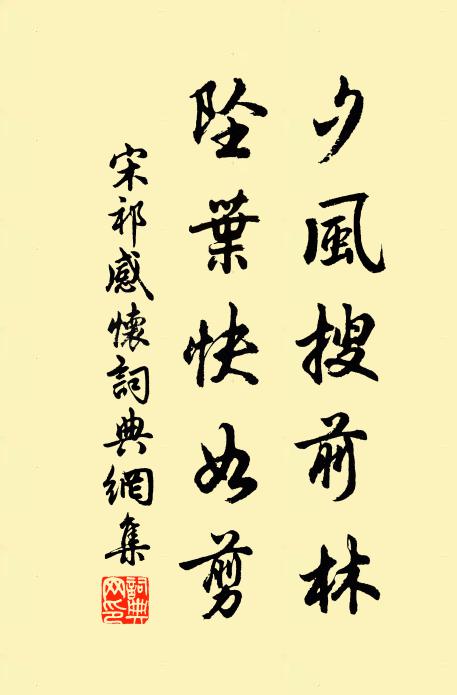 夕風搜前林
墜葉快如剪
宋祁感懷詞典網集
詞典網印